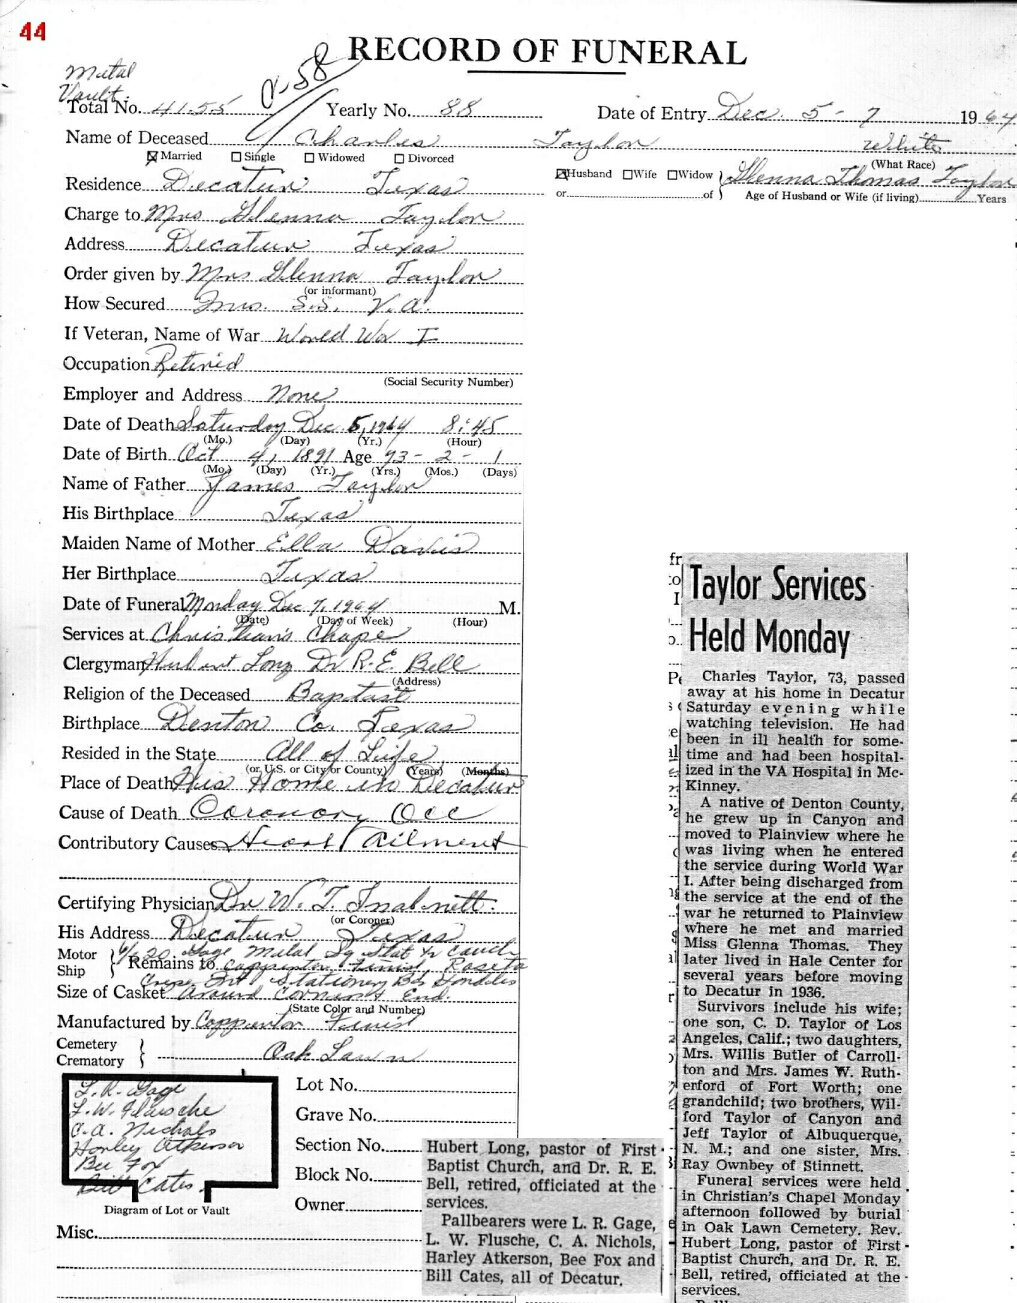 44
RECORD OF FUNERAL
Metal
Vault
Total No. 4155 Yearly No. 88 Date of Entry Dec. 5-7 1964
Name of Deceased Charles Taylor White
Married Single Widowed Divorced (What Race)
Residence Decatur Texas Husband Wife Widow } Glenna Thomas Taylor
or of } Age of Husband or Wife (if living) Years
Charge to Mrs Glenna Taylor
Address Decatur Texas
Order given by Mrs Glenna Taylor
(or informant)
How Secured Ins. S.S. V.A.
If Veteran, Name of War World War I
Occupation Retired
(Social Security Number)
Employer and Address None
Date of Death Saturday Dec 5, 1964 8:45
(Mo.) (Day) (Yr.) (Hour)
Date of Birth Oct 4, 1891 Age 73-2-1
(Mo.) (Day) (Yr.) (Yrs.) (Mos.) (Days)
Name of Father James Taylor
His Birthplace Texas
Maiden Name of Mother Ella Davis
Her Birthplace Texas
Date of Funeral Monday Dec 7, 1964 M.
(Date) (Day of Week) (Hour)
Services at Christian's Chape
Clergyman Hubert Long Dr R.E. Bell
(Address)
Religion of the Deceased Baptist
Birthplace Denton Co. Texas
Resided in the State All of Life
(or U.S. or City or County) (Years) (Months)
Place of Death His Home in Decatur
Cause of Death Coronory Occ
Contributory Causes Heart Ailment
Certifying Physician Dr W. T. Inabnett.
(or Coroner)
His Address Decatur Texas
Motor
Ship } Remains to
Size of Casket Around Corners End.
(State Color and Number)
Manufactured by
Cemetery
Crematory } Oak Lawn
L. R. Gage
L. W. Flusche
C. A. Nichols
Harley Atkerson
Bee Fox
Bill Cates
Diagram of Lot or Vault
Lot No.
Grave No.
Section No.
Block No.
Owner
Misc.
Hubert Long, pastor of First
Baptist Church, and Dr. R. E.
Bell, retired, officiated at the
services.
Pallbearers were L. R. Gage,
L. W. Flusche, C. A. Nichols,
Harley Atkerson, Bee Fox and
Bill Cates, all of Decatur.
Taylor Services
Held Monday
Charles Taylor, 73, passed
away at his home in Decatur
Saturday evening while
watching television. He had
been in ill health for some-
time and had been hospital-
ized in the VA Hospital in Mc-
Kinney.
A native of Denton County,
he grew up in Canyon and
moved to Plainview where he
was living when he entered
the service during World War
I. After being discharged from
the service at the end of the
war he returned to Plainview
where he met and married
Miss Glenna Thomas. They
later lived in Hale Center for
several years before moving
to Decatur in 1936.
Survivors include his wife;
one son, C. D. Taylor of Los
Angeles, Calif.; two daughters,
Mrs. Willis Butler of Carroll-
ton and Mrs. James W. Ruth-
erford of Fort Worth; one
grandchild; two brothers, Wil-
ford Taylor of Canyon and
Jeff Taylor of Albuquerque,
N. M.; and one sister, Mrs.
Ray Ownbey of Stinnett.
Funeral services were held
in Christian's Chapel Monday
afternoon followed by burial
in Oak Lawn Cemetery. Rev.
Hubert Long, pastor of First
Baptist Church, and Dr. R. E.
Bell, retired, officiated at the
services.